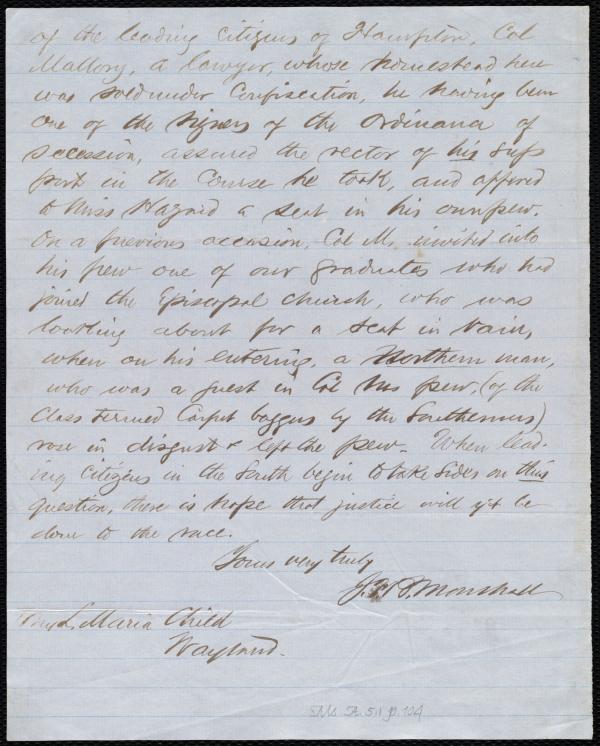 of the leading citizens of Hampton, Col
Mallory, a lawyer, whose homestead here
was sold under Confiscation, he having been
one of the signers of the Ordinance of
Secession, assured the rector of his sup
port in the course he took, and offered
to Miss Hazard a seat in his own pew.
On a previous occasion, Col M. invited into
his pew one of our graduates who had
joined the Episcopal church, who was
looking about for a seat in vain,
when on his entering, a Northern man,
who was a guest in Col Ms pew, (of the
class termed Carpet baggers by the Southerners)
rose in disgust & left the pew. When lead-
ing citizens in the South begin to take sides on this
question, there is hope that justice will yet be
done to the race.
Yours very truly
Marshall
Mrs L. Maria Child
Wayland.
Ms. A. 5.1 p. 104